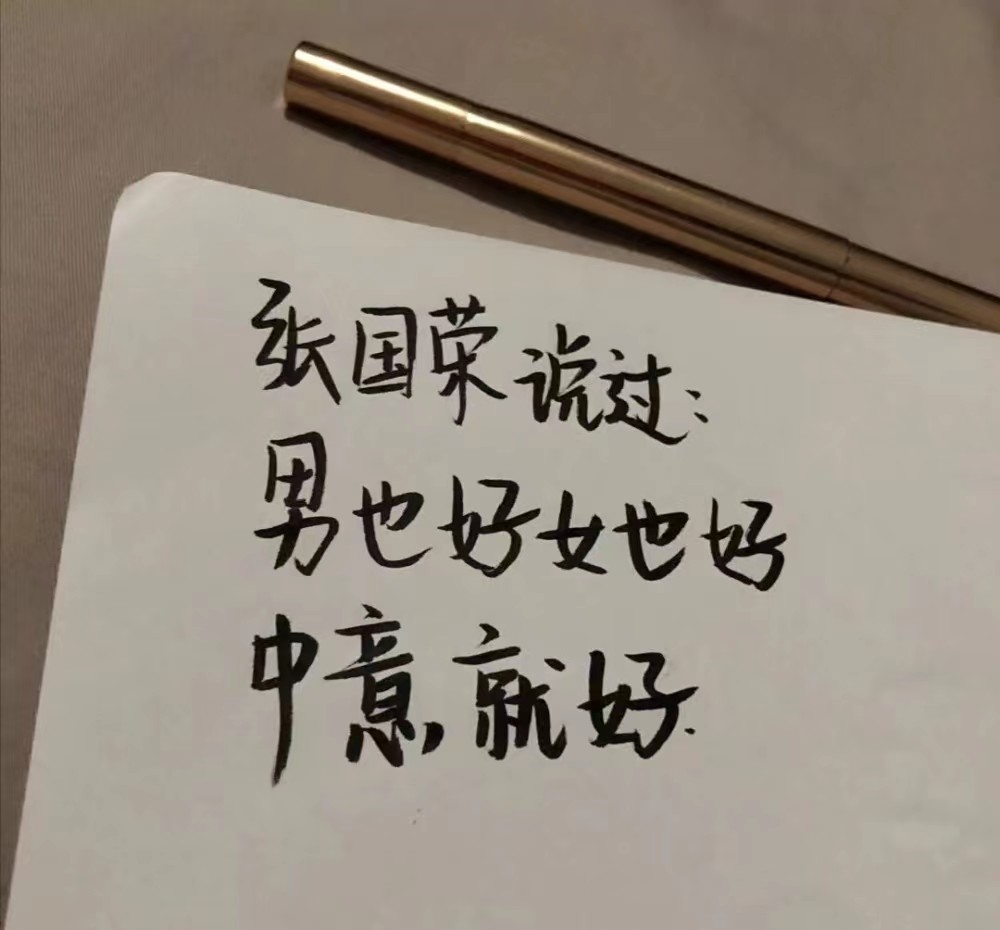 张国荣说过:
男也好女也好
中意就好.